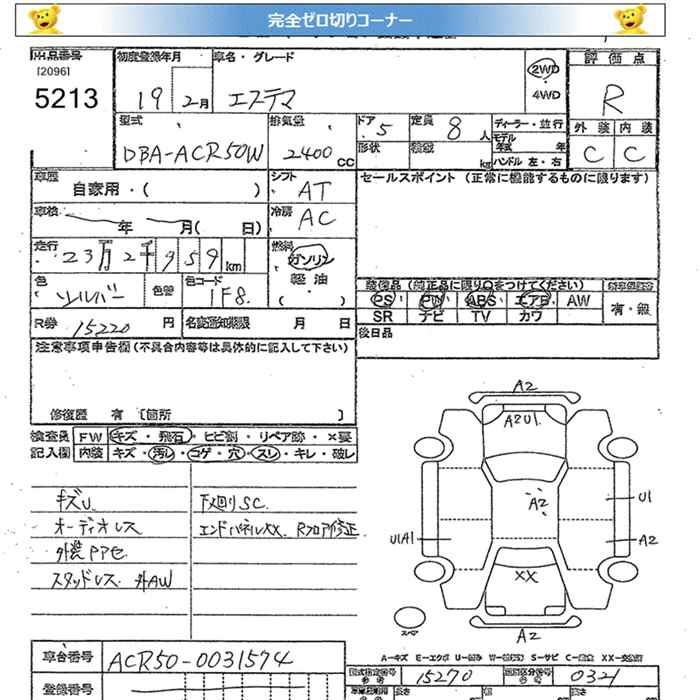 完全ゼロ切りコーナー
出品番号 初度登録年月 車名・グレード 2WD 評価点
[2096]
5213 19 2月 エスティマ 4WD R
型式 排気量 ドア 5 定員 8人 ディーラー・並行 外装 内装
DBA-ACR50W 2400 CC 形状 積載 kg モデル年式 年 C C
ハンドル 左・右
車歴 自家用・( ) シフト AT セールスポイント (正常に機能するものに限ります)
車検 年 月( 日) 冷房 AC
走行 23万2千959km 燃料 ガソリン
軽油
( )
色 シルバー 色替 色コード 1F8 装備品 (純正品に限り○をつけてください)
PS PW ABS エアB AW 有・無
R券 15220 円 名変通知期限 月 日 SR ナビ TV カワ
後日品
注意事項申告欄 (不具合内容等は具体的に記入して下さい)
修復歴 有 〔箇所 〕
検査員 FW キズ・飛石・ヒビ割・リペア跡・×要
記入欄 内装 キズ・汚レ・コゲ・穴・スレ・キレ・破レ
キズU 下廻りSC
オーディオレス エンドパネルXX Rフロア修正
外装PP色
スタッドレス 外AW
A2
A2U1
A2
U1
U1A1
A2
XX
A2
スペア
A-キズ E-エクボ U-凹み W-波打ち S-サビ C-腐食 XX-交換済
車台番号 ACR50-0031574 型式指定番号 15270 類別区分番号 0321
登録番号 長さ 幅 高さ